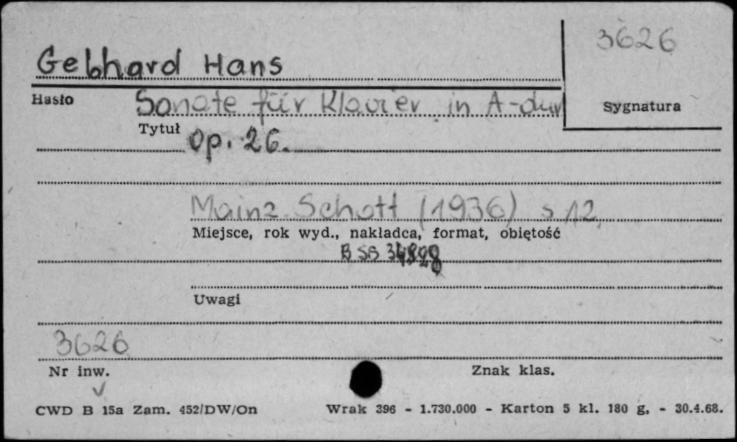 3626
Gebhard Hans
Hasło
Sonate für Klavier in A-dur
Sygnatura
Tytuł
Op. 26.
Mainz Schott (1936) s 12
Miejsce, rok wyd., nakładca, format, objętość
BSB
Uwagi
3626
Nr inw.
Znak klas.
CWD B 15a Zam. 452/DW/On
Wrak 396 - 1.730.000 - Karton 5 kl. 180 g, - 30.4.68.